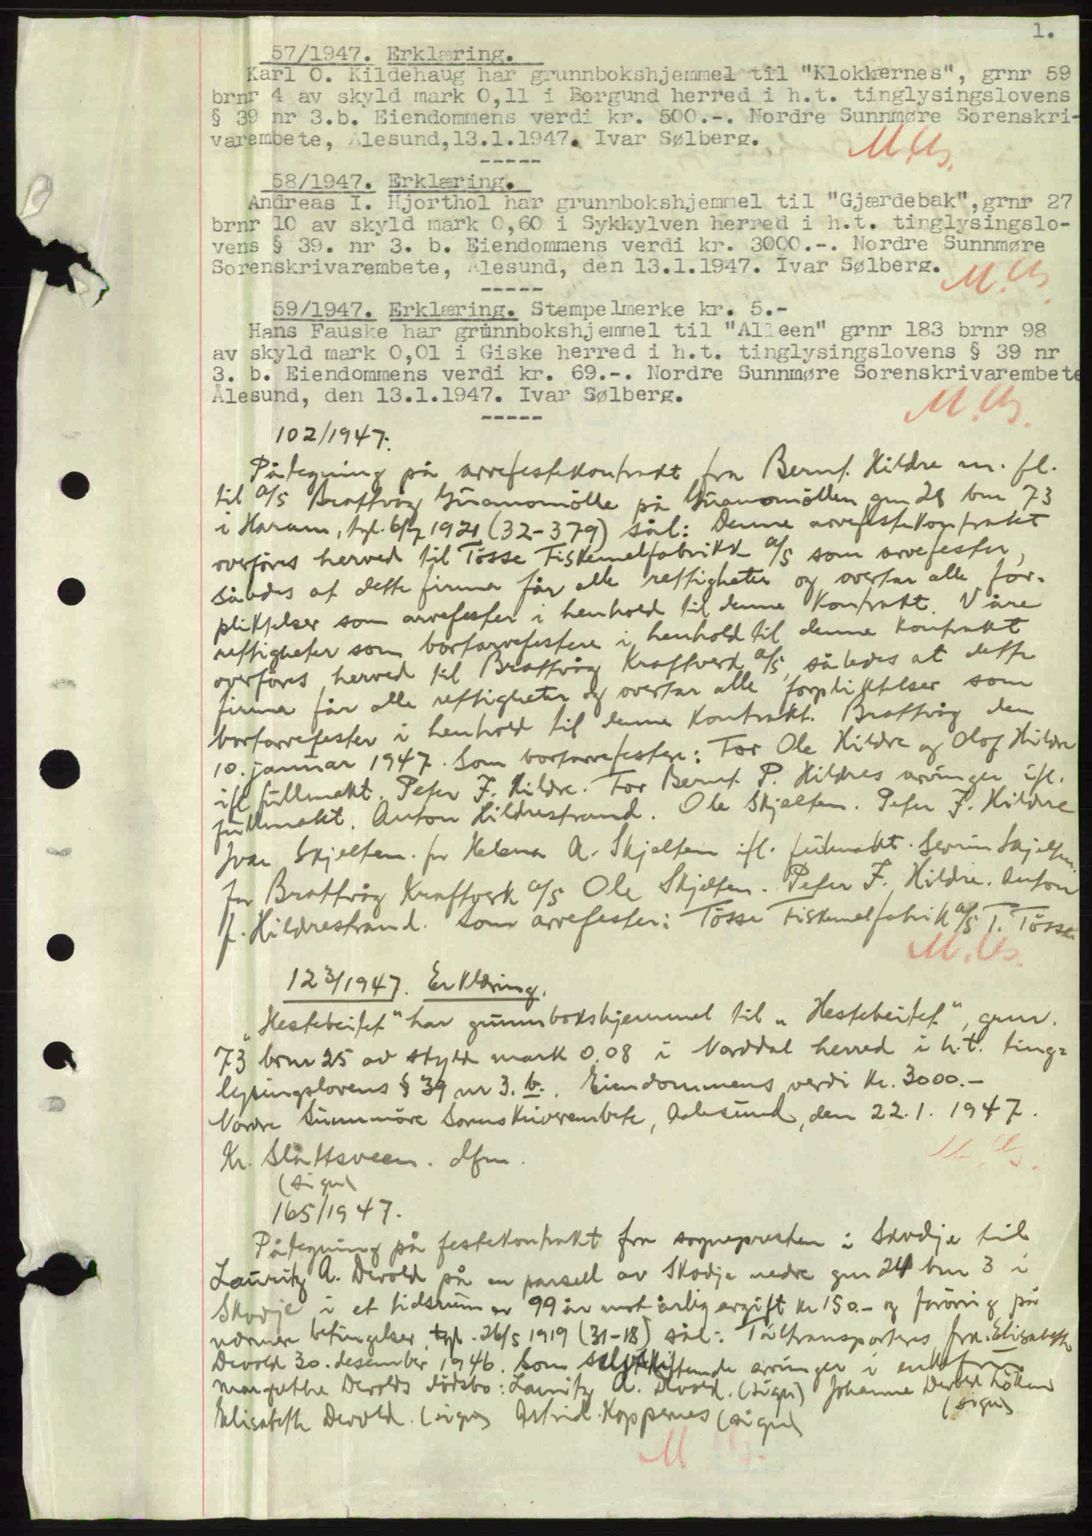 1.
57/1947. Erklæring.
Karl O. Kildehaug har grunnbokshjemmel til "Klokkernes", grnr 59
brnr 4 av skyld mark 0,11 i Borgund herred i h.t. tinglysingslovens
§ 39 nr 3.b. Eiendommens verdi kr. 500.-. Nordre Sunnmøre Sorenskri-
varembete, Ålesund,13.1.1947. Ivar Sølberg.
-----
58/1947. Erklæring.
Andreas I. Hjorthol har grunnbokshjemmel til "Gjærdebak",grnr 27
brnr 10 av skyld mark 0,60 i Sykkylven herred i h.t. tinglysingslo-
vens § 39. nr 3. b. Eiendommens verdi kr. 3000.-. Nordre Sunnmøre
Sorenskrivarembete, Ålesund, den 13.1.1947. Ivar Sølberg.
-----
59/1947. Erklæring. Stempelmerke kr. 5.-
Hans Fauske har grunnbokshjemmel til "Alleen" grnr 183 brnr 98
av skyld mark 0,01 i Giske herred i h.t. tinglysingslovens § 39 nr
3. b. Eiendommens verdi kr. 69.-. Nordre Sunnmøre Sorenskrivarembete
Ålesund, den 13.1.1947. Ivar Sølberg.
-----
102/1947.
Påtegning på arvefestekontrakt fra Bernt. Hildre m. fl.
til a/s Brattvåg Guanomölle på Guanomöllen gnr 28 bnr 73
i Haram, tgl. 6/7 1921 (32-379) sål: Denne arvefestekontrakt
overföres herved til Tösse Fiskemelfabrikk a/s som arvefester,
således at dette firma får alle rettigheter og overtar alle for-
pliktelser som arvefester i henhold til denne kontrakt. Våre
rettigheter som bortarvefestere i henhold til denne kontrakt
overföres herved til Brattvåg Kraftverk a/s, således at dette
firma får alle rettigheter og overtar alle forpliktelser som
bortarvefester i henhold til denne kontrakt. Brattvåg den
10. januar 1947. Som bortarvefestere: For Ole Hildre og Olof Hildre
ifl. fullmakt. Peter F. Hildre. For Bernt. P. Hildres arvinger ifl.
fullmakt. Anton Hildrestrand. Ole Skjelten. Peter F. Hildre
Ivar Skjelten. for Helena A. Skjelten ifl. fullmakt. Severin Skjelten.
for Brattvåg Kraftverk a/s Ole Skjelten. Peter F. Hildre. Anton
P. Hildrestrand. som arvefester: Tösse Fiskemelfabrik a/s T. Tösse
123/1947. Erklæring.
"Hestebeitet" har grunnbokshjemmel til "Hestebeitet", grnr.
73 brnr 25 av skyld mark 0,08 i Norddal herred i h.t. ting-
lysingslovens § 39 nr 3. b. Eiendommens verdi kr. 3000.-
Nordre Sunnmöre Sorenskriverembete, Aalesund, den 22.1. 1947.
Kr. Slåttsveen. dfm.
(sign)
165/1947.
Påtegning på festekontrakt fra sognepresten i Skodje til
Lauritz A. Devold på en parsell av Skodje nedre gnr 24 bnr 3 i
Skodje i et tidsrum av 99 år mot årlig avgift kr 150.- og forövrig på
nærmere betingelser, tgl. 26/5 1919 (31-18) sål: Tiltransporteres frk. Elisabeth
Devold 30. desember 1946. Som selvskiftende arvinger i enkefru
Margrethe Devolds dödsbo: Lauritz A. Devold. (sign) Johanne Devold Löken
(sign)
Elisabeth Devold. (sign) Astrid Koppernes (sign)